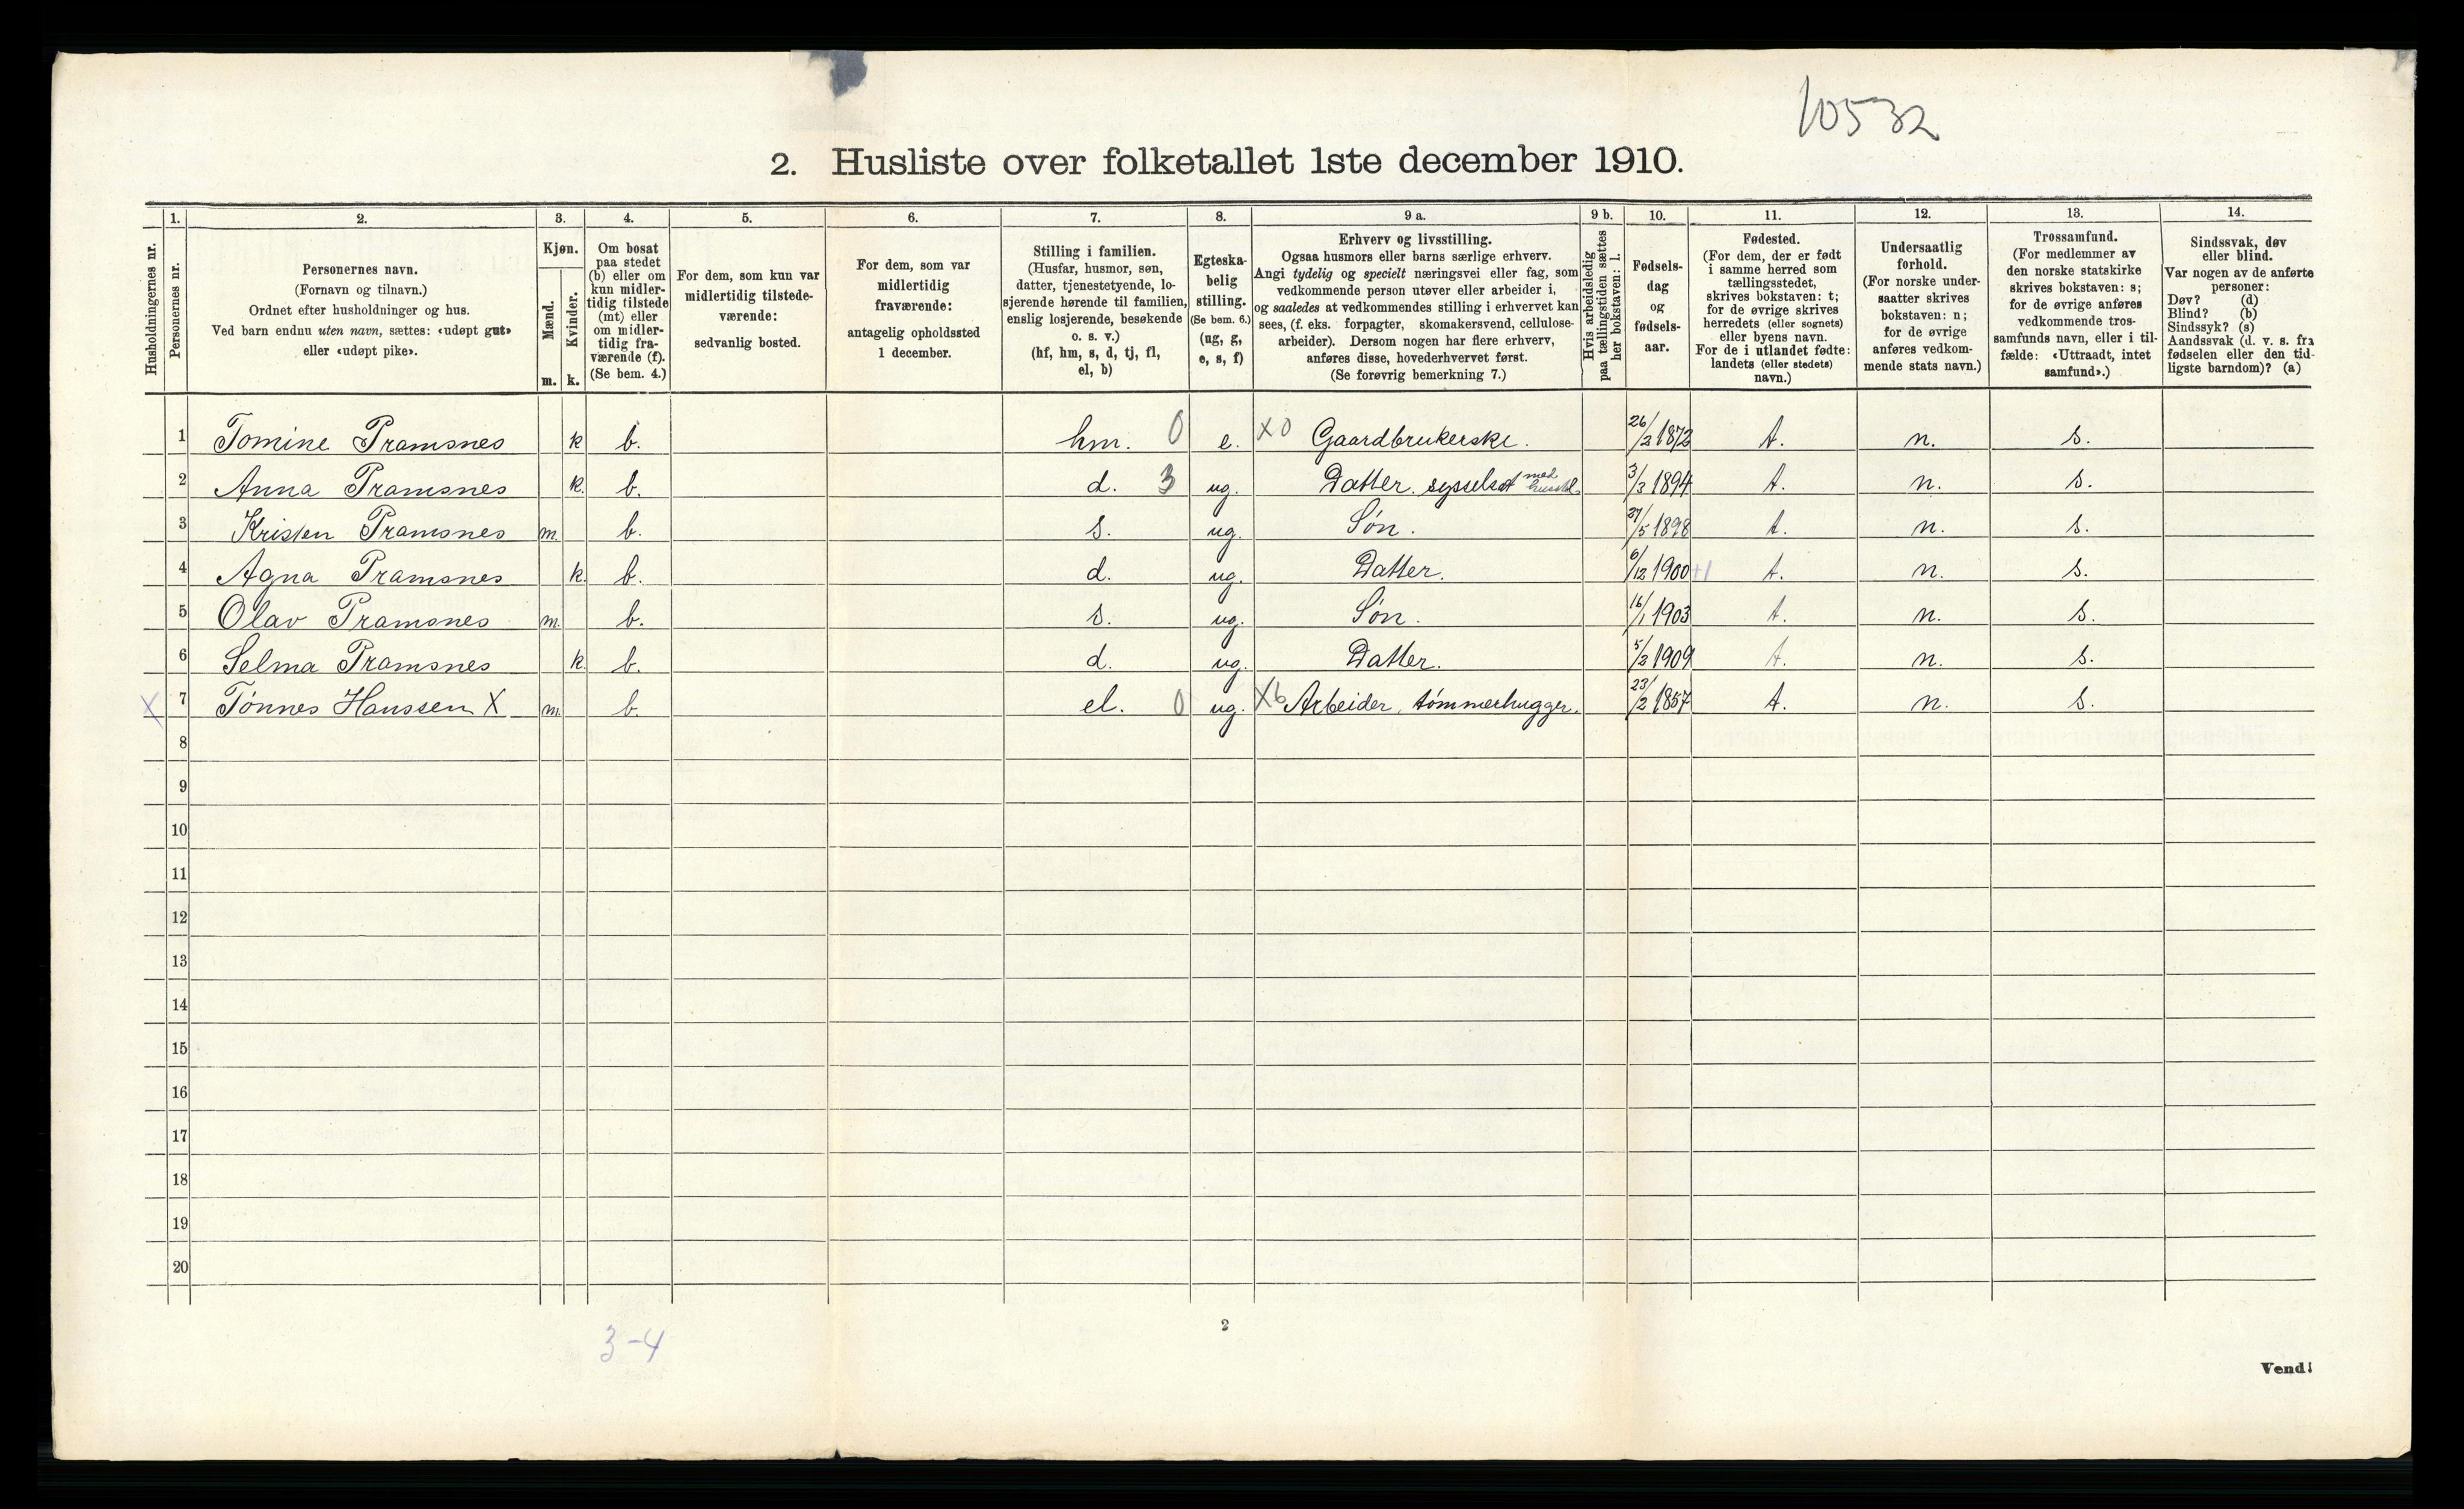 10532
2. Husliste over folketallet 1ste december 1910.
Husholdningernes nr.
1.
Personernes nr.
2.
Personernes navn.
(Fornavn og tilnavn.)
Ordnet efter husholdninger og hus.
Ved barn endnu uten navn, sættes: «udøpt gut»
eller «udøpt pike».
3.
Kjøn.
Mænd.
Kvinder.
m. k.
4.
Om bosat
paa stedet
(b) eller om
kun midler-
tidig tilstede
(mt) eller
om midler-
tidig fra-
værende (f).
(Se bem. 4.)
5.
For dem, som kun var
midlertidig tilstede-
værende:
sedvanlig bosted.
6.
For dem, som var
midlertidig
fraværende:
antagelig opholdssted
1 december.
7.
Stilling i familien.
(Husfar, husmor, søn,
datter, tjenestetyende, lo-
sjerende hørende til familien,
enslig losjerende, besøkende
o. s. v.)
(hf, hm, s, d, tj, fl,
el, b)
8.
Egteska-
belig
stilling.
(Se bem. 6.)
(ug, g,
e, s, f)
9 a.
Erhverv og livsstilling.
Ogsaa husmors eller barns særlige erhverv.
Angi tydelig og specielt næringsvei eller fag, som
vedkommende person utøver eller arbeider i,
og saaledes at vedkommendes stilling i erhvervet kan
sees, (f. eks. forpagter, skomakersvend, cellulose-
arbeider). Dersom nogen har flere erhverv,
anføres disse, hovederhvervet først.
(Se forøvrig bemerkning 7.)
9 b.
Hvis arbeidsledig
paa tællingstiden sættes
her bokstaven: l.
10.
Fødsels-
dag
og
fødsels-
aar.
11.
Fødested.
(For dem, der er født
i samme herred som
tællingsstedet,
skrives bokstaven: t;
for de øvrige skrives
herredets (eller sognets)
eller byens navn.
For de i utlandet fødte:
landets (eller stedets)
navn.)
12.
Undersaatlig
forhold.
(For norske under-
saatter skrives
bokstaven: n;
for de øvrige
anføres vedkom-
mende stats navn.)
13.
Trossamfund.
(For medlemmer av
den norske statskirke
skrives bokstaven: s;
for de øvrige anføres
vedkommende tros-
samfunds navn, eller i til-
fælde: «Uttraadt, intet
samfund».)
14.
Sindssvak, døv
eller blind.
Var nogen av de anførte
personer:
Døv? (d)
Blind? (b)
Sindssyk? (s)
Aandssvak (d. v. s. fra
fødselen eller den tid-
ligste barndom)? (a)
1 Tomine Pramsnes k b. hm. 0 e. X0 Gaardbrukerske. 26/2 1872 t. n. s.
2 Anna Pramsnes k. b. d. 3 ug. Datter. sysselsat med husstel. 3/3 1894 t. n. s.
3 Kristen Pramsnes m. b. s. ug. Søn. 27/5 1898 t. n. s.
4 Agna Pramsnes k. b. d. ug. Datter. 6/12 1900 +1 t. n. s.
5 Olav Pramsnes m. b. s. ug. Søn. 16/1 1903 t. n. s.
6 Selma Pramsnes k. b. d. ug. Datter. 5/2 1909 t. n. s.
X 7 Tønnes Hanssen X m. b. el. 0 ug. X6 Arbeider, tømmerhugger. 23/2 1857 t. n. s.
8
9
10
11
12
13
14
15
16
17
18
19
20
3-4
2
Vend!